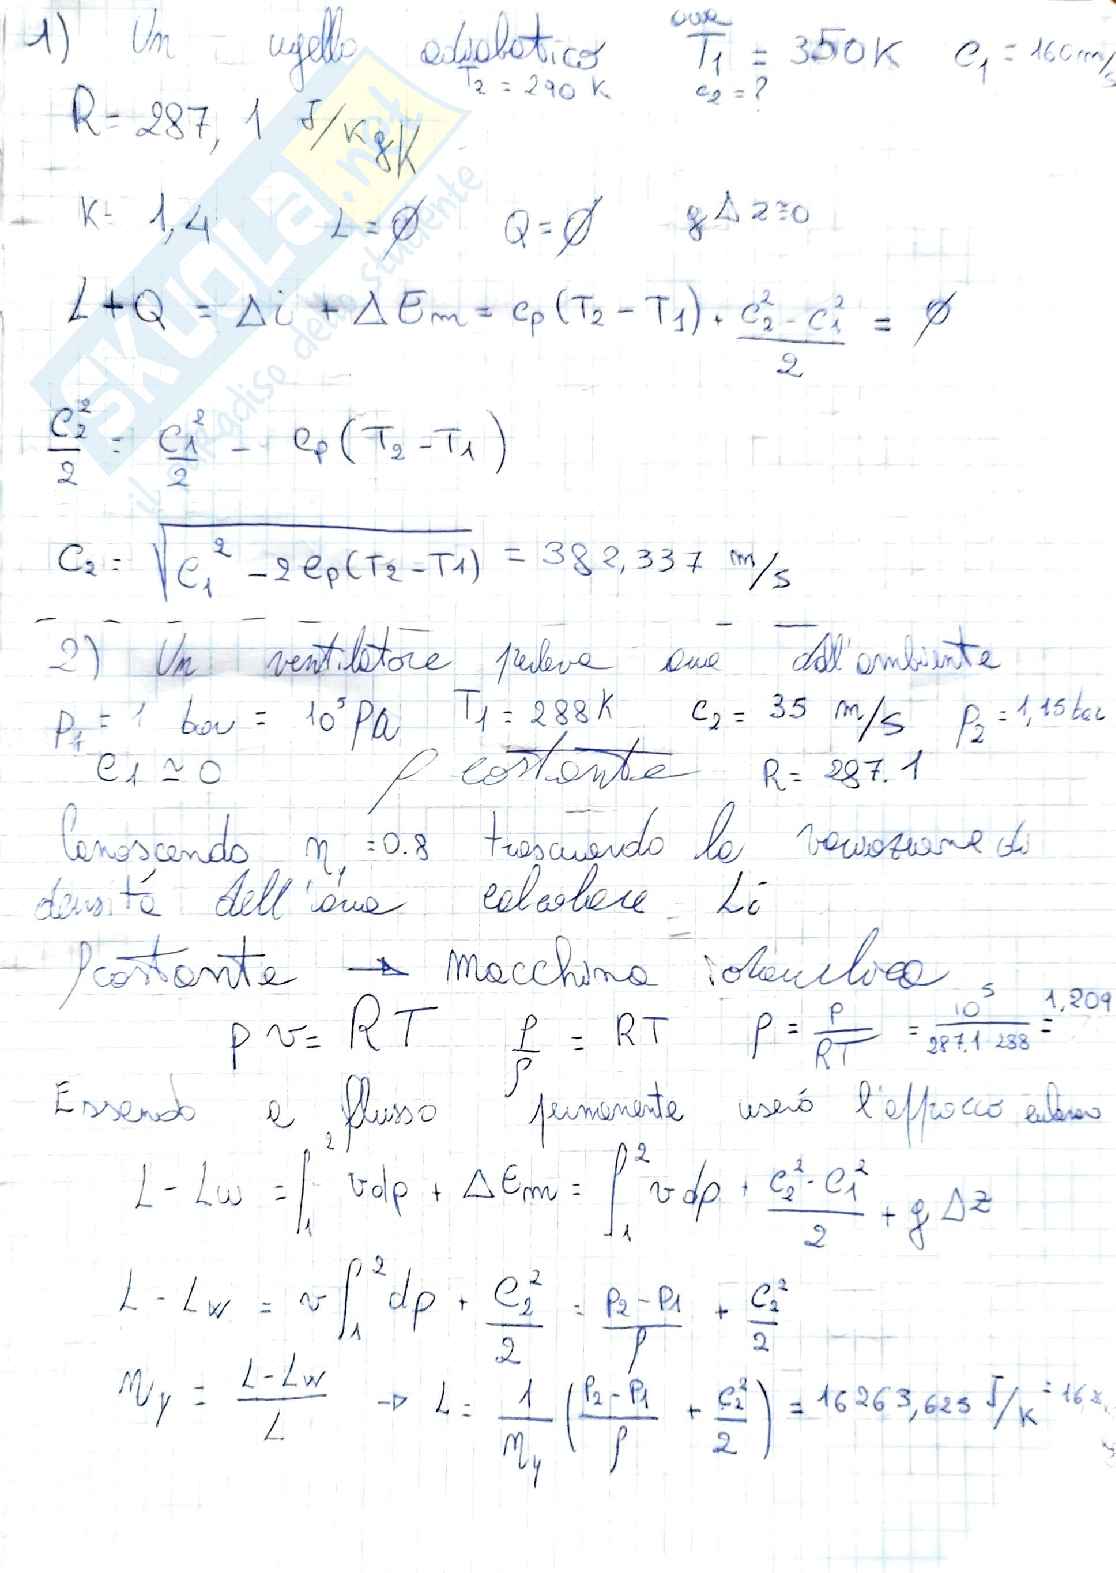 1) Un ugello adiabatico aria T1 = 350K c1 = 160 m/s
T2 = 290 K c2 = ?
R = 287,1 J/kgK
K = 1,4 L = ∅ Q = ∅ gΔz≅0
L+Q = Δi + ΔEm = cp(T2 - T1) + (c2² - c1²)/2 = ∅
c2²/2 = c1²/2 - cp(T2 - T1)
c2 = √(c1² - 2cp(T2 - T1)) = 382,337 m/s
2) Un ventilatore preleva aria dall'ambiente
p1 = 1 bar = 10⁵ Pa T1 = 288K c2 = 35 m/s p2 = 1,15 bar
c1 ≃ 0 ρ costante R = 287.1
Conoscendo ηy = 0.8 trascurando la variazione di
densità dell'aria calcolare Li
ρ costante → Macchina idraulica
pv = RT p/ρ = RT ρ = p/RT = 10⁵/(287.1·288) = 1,209
Essendo a flusso permanente userò l'approccio euleriano
L - Lw = ∫₁² vdp + ΔEm = ∫₁² vdp + (c2² - c1²)/2 + gΔz
L - Lw = v∫₁² dp + c2²/2 = (p2 - p1)/ρ + c2²/2
ηy = (L - Lw)/L → L = 1/ηy ((p2 - p1)/ρ + c2²/2) = 16263,625 J/K = 16
SKUOLA.net
il paradiso dello studente